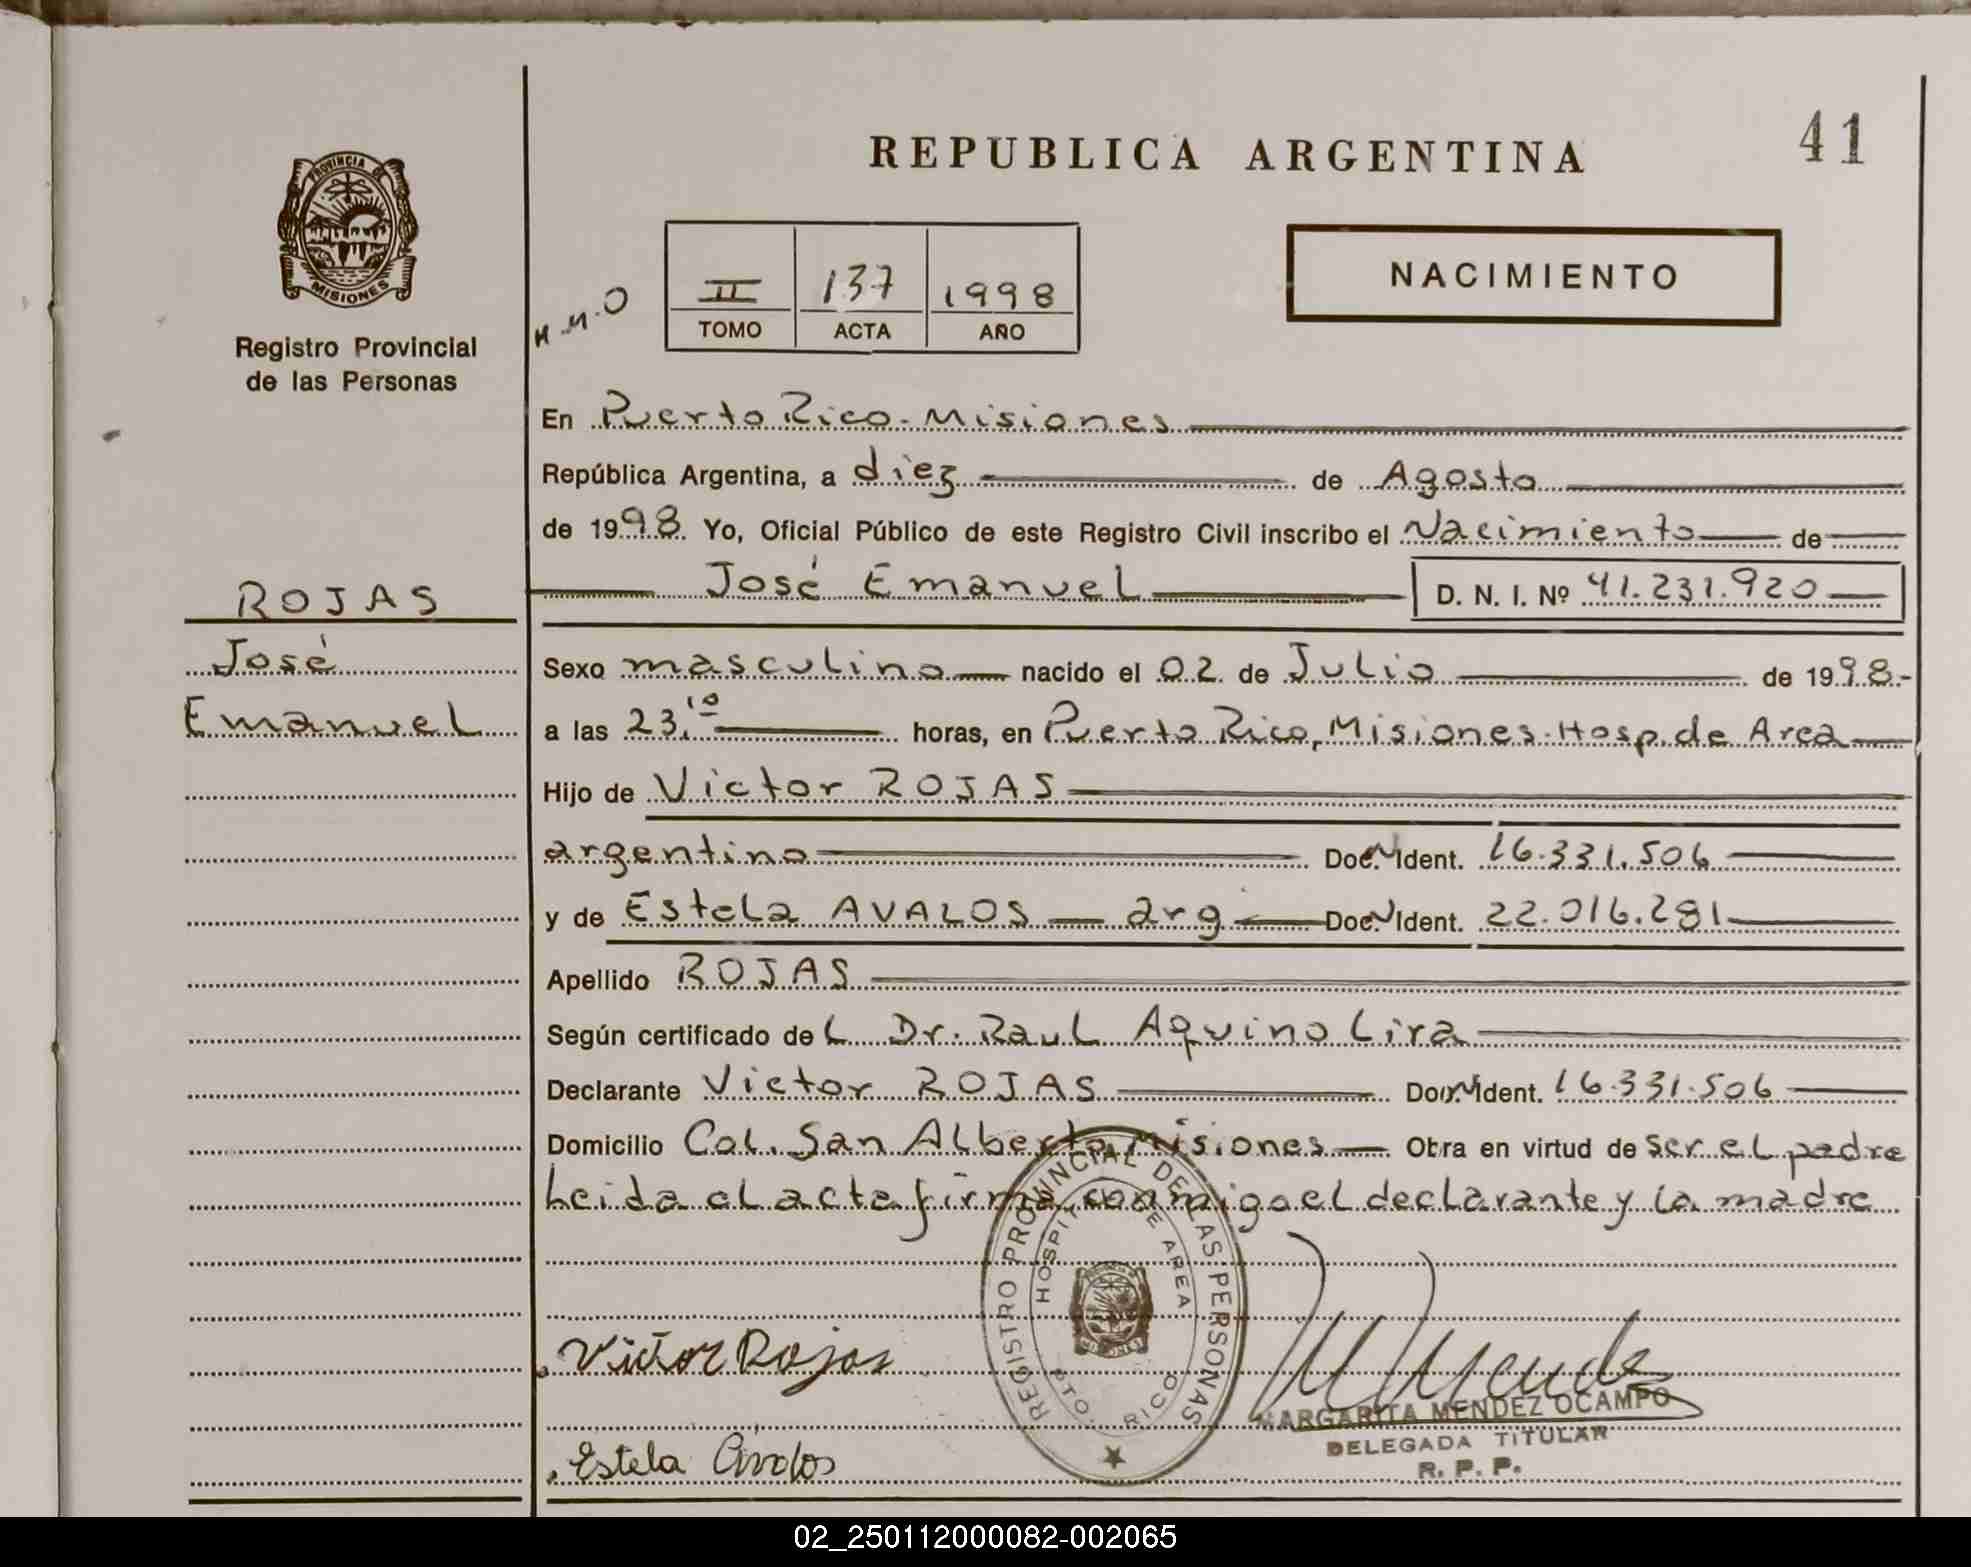 REPUBLICA ARGENTINA
41
PROVINCIA DE
MISIONES
Registro Provincial
de las Personas
H.M.O
II 137 1998
TOMO ACTA AÑO
NACIMIENTO
En Puerto Rico - Misiones
República Argentina, a diez de Agosto
de 1998. Yo, Oficial Público de este Registro Civil inscribo el Nacimiento de
José Emanuel D. N. I. Nº 41.231.920
ROJAS
José
Emanuel
Sexo masculino nacido el 02 de Julio de 1998.-
a las 23,10 horas, en Puerto Rico, Misiones. Hosp. de Area
Hijo de Victor ROJAS
argentino Doc. Ident. 16.331.506
y de Estela AVALOS - arg. Doc. Ident. 22.016.281
Apellido ROJAS
Según certificado de L Dr. Raul Aquino Lira
Declarante Victor ROJAS Doc. Ident. 16.331.506
Domicilio Col. San Alberto, Misiones - Obra en virtud de ser el padre
Leida el acta firma conmigo el declarante y la madre
REGISTRO PROVINCIAL DE LAS PERSONAS
HOSPITAL DE AREA
PTO. RICO
Victor Rojas
M Mendez
MARGARITA MENDEZ OCAMPO
DELEGADA TITULAR
R. P. P.
Estela Avalos
02_250112000082-002065